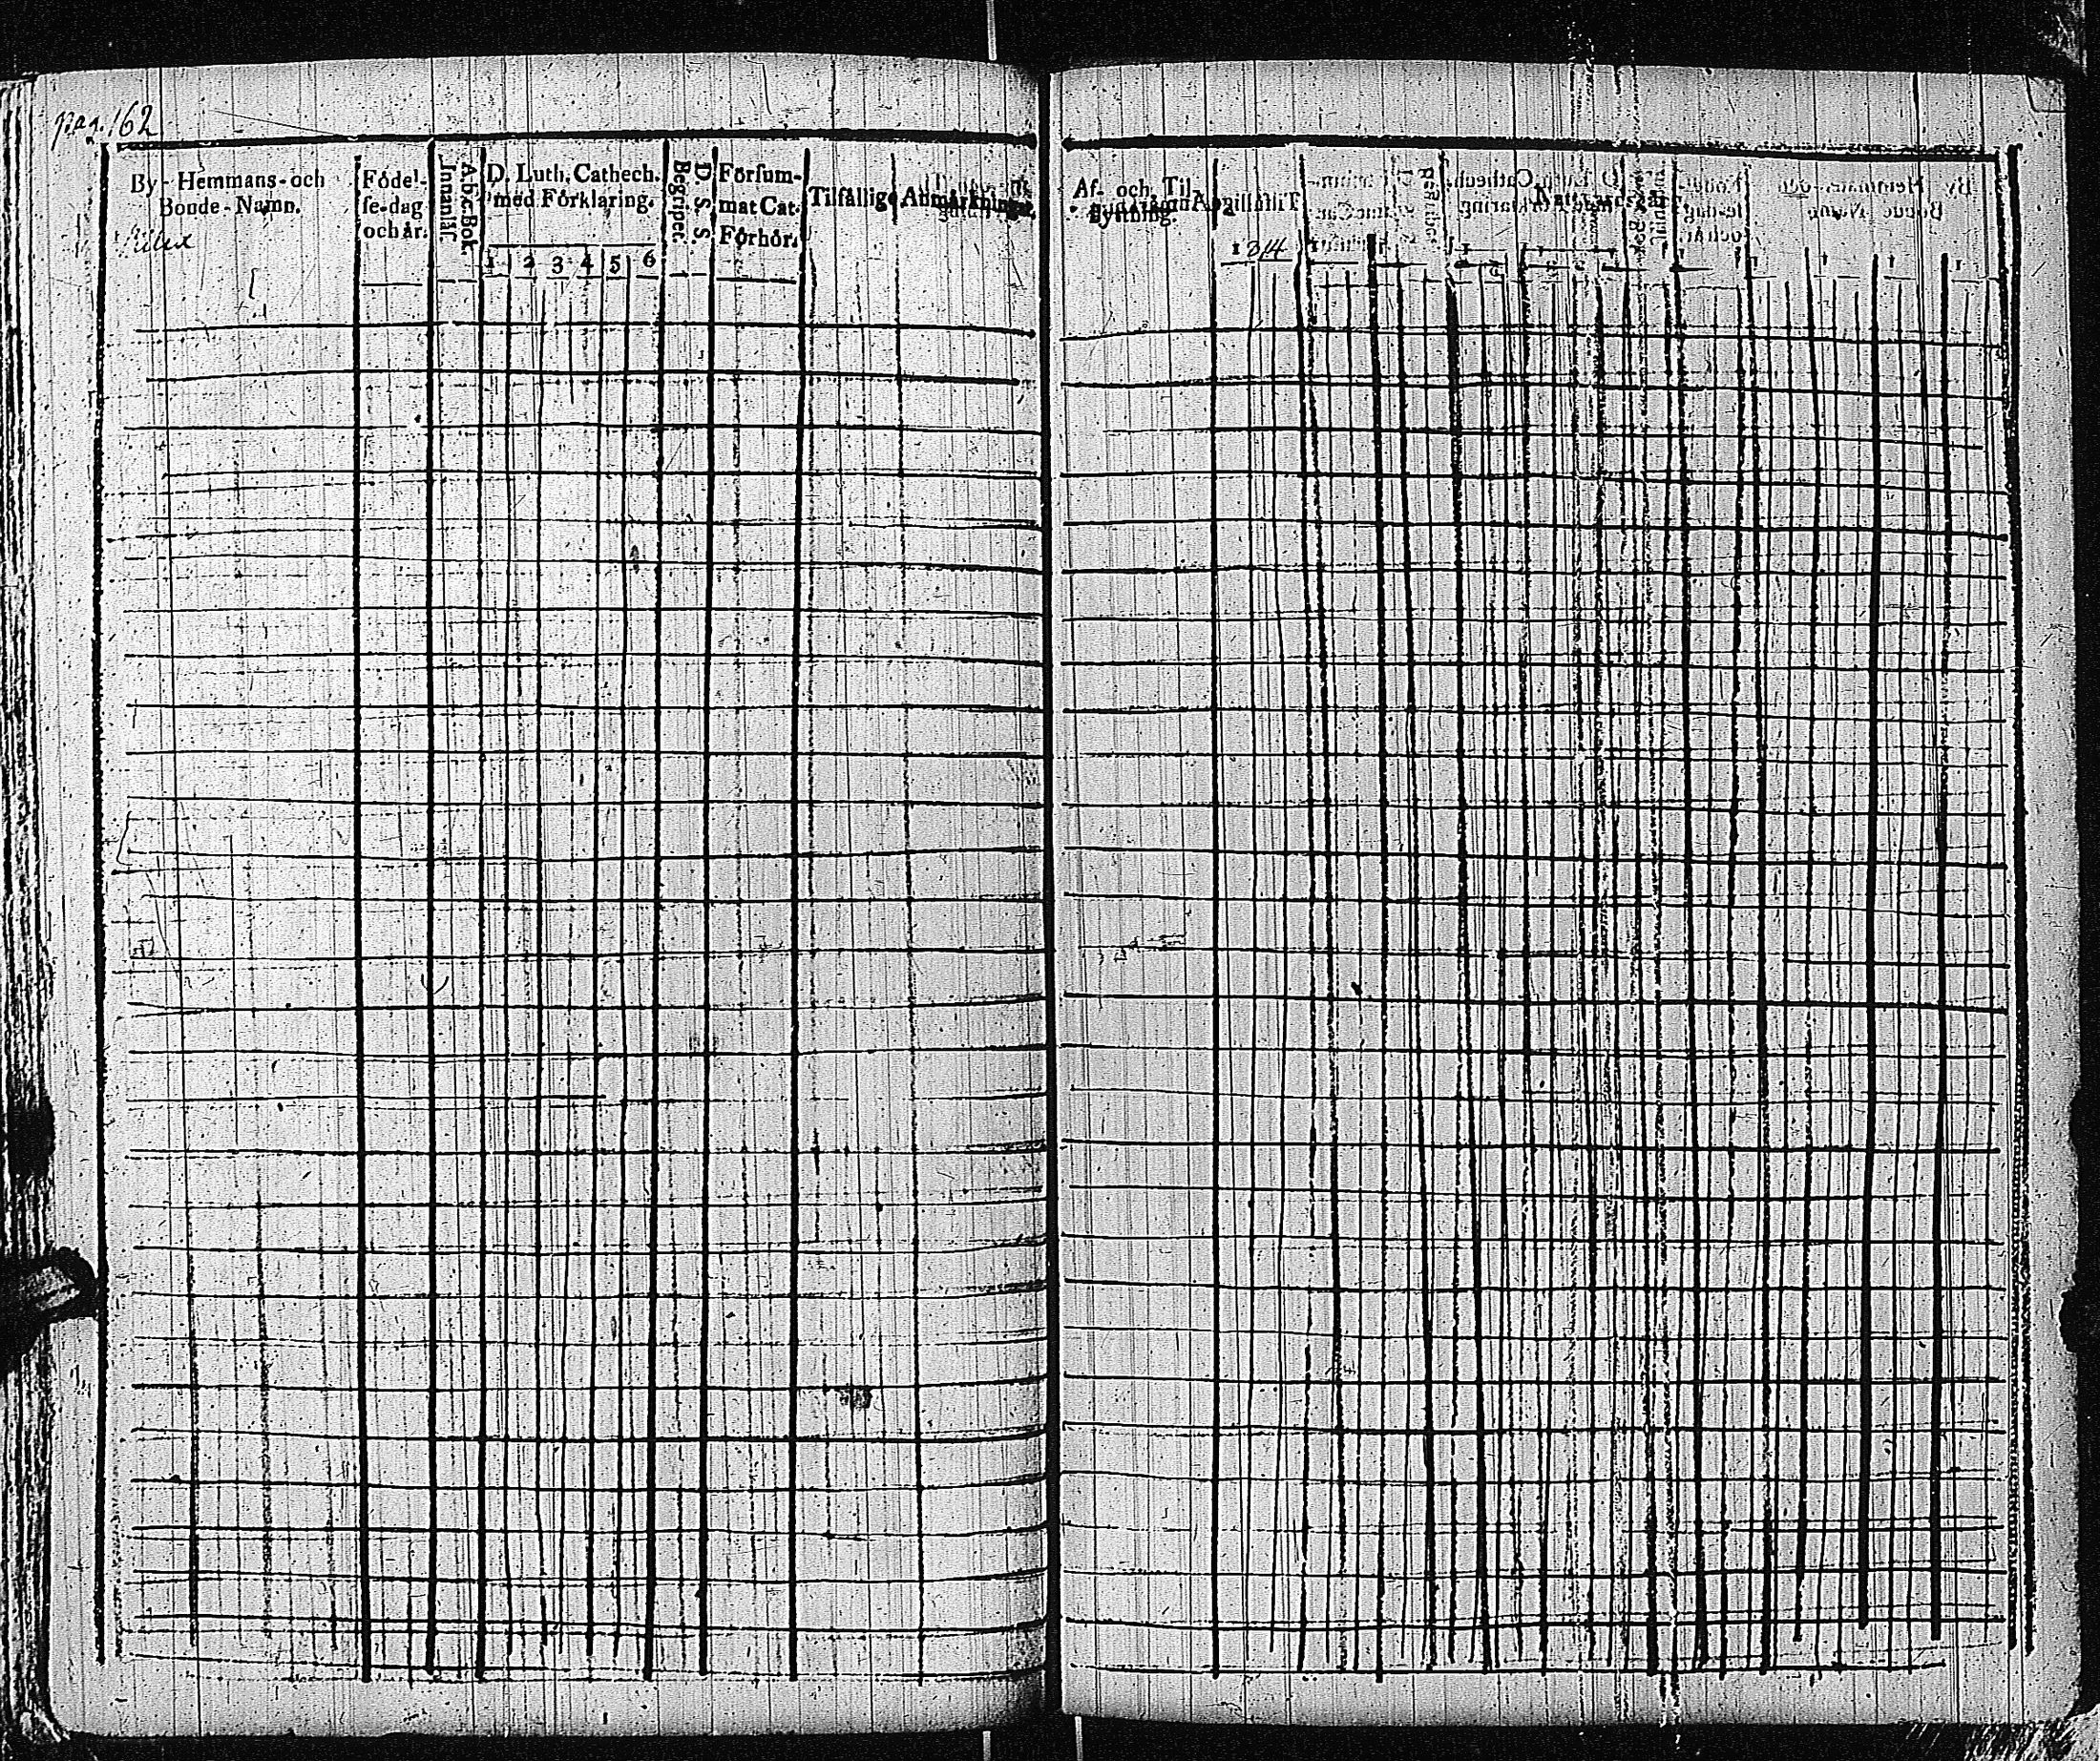 pag. 162
By-Hemmans-och
Bonde-Namn.
Födel-
se-dag
och år.
A.b.c.Bok.
Innanläs.
D. Luth. Cathech.
med Förklaring.
1 2 3 4 5 6
Begriper.
D. S. S.
Försum-
mat Cat.
Förhör.
Tilfällige Anmärkningar.
Af- och Til-
flyttning.
1814